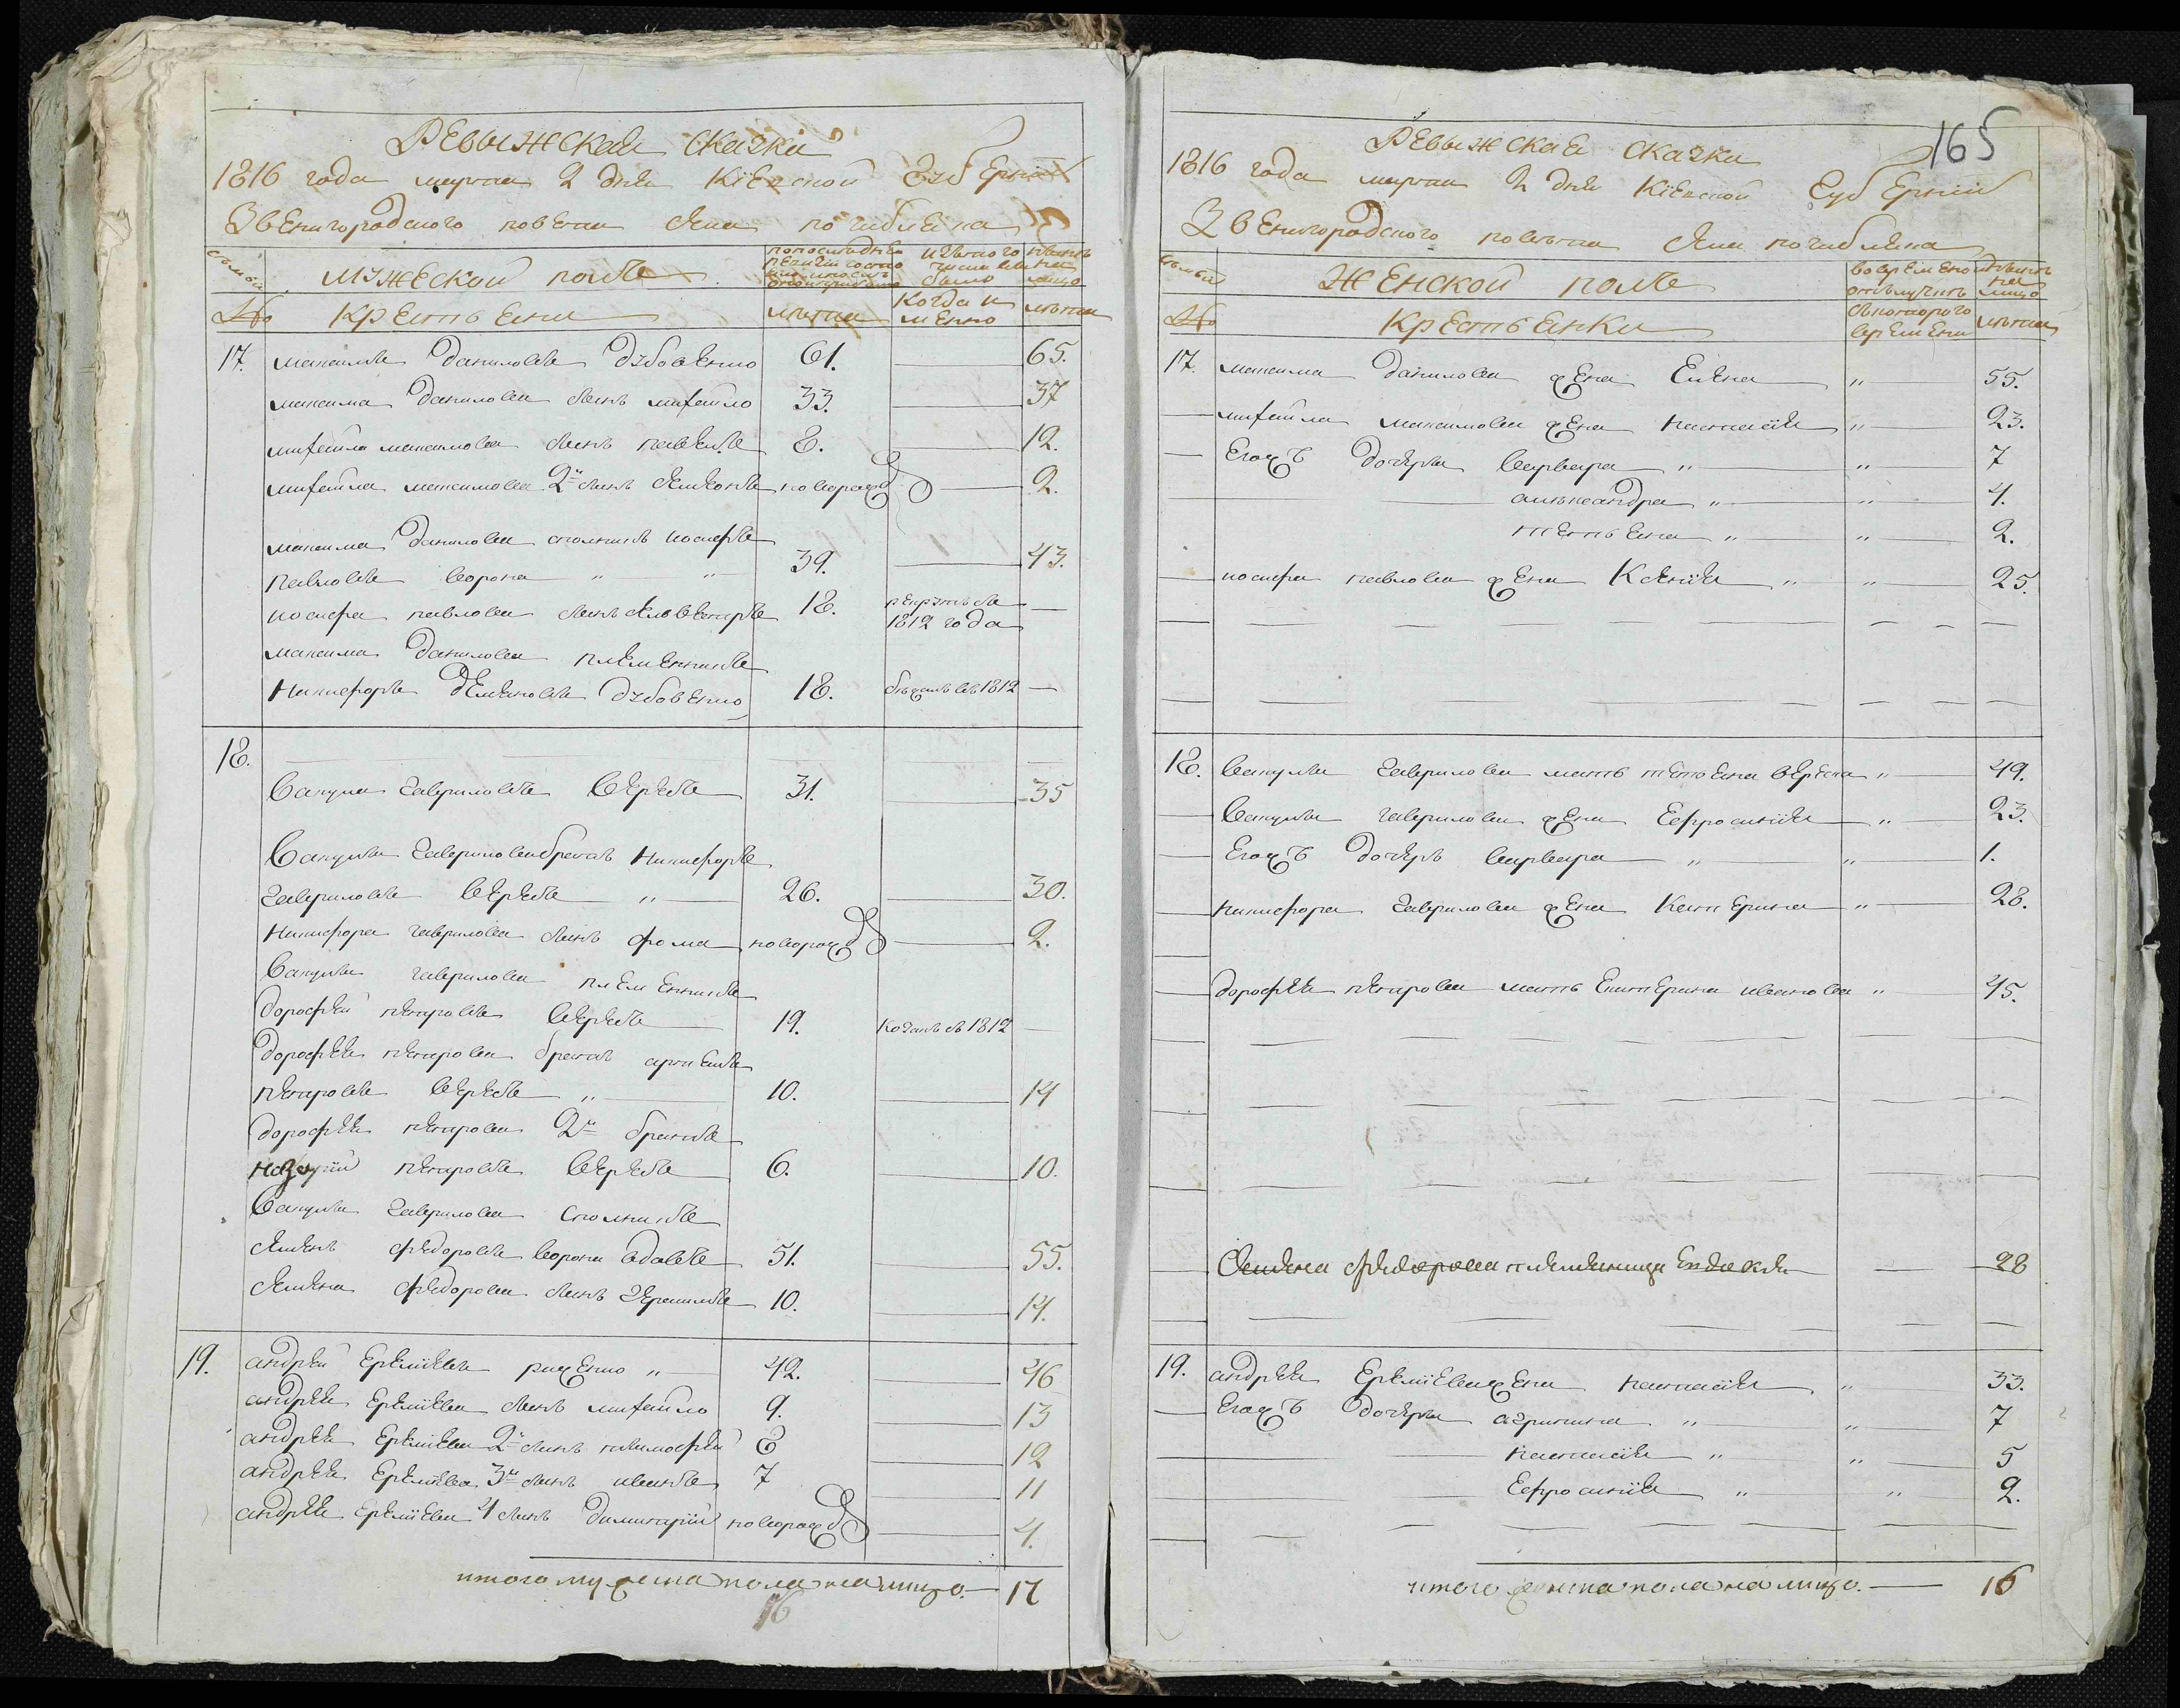 Ревыжская сказка
1816 года марта 2 дня Кіевской Губерніи
Звенигородского повета села погиблека
семьи
мужеской полъ
по последней ревизіи состояло и после того прибыло
изътого числа выбыло
ныне на лицо
№
Крестьяни
лѣта
Когда и менно
лѣта
17. максимъ даниловъ дубовенко 61. 65.
максима данилова сынъ михайло 33. 37
михайла максимова сынъ павелъ 8. 12.
михайла максимова 2й сынъ Семионъ новорож 2.
максима данилова столникъ иосифъ
павловъ ворона " " 39. 43.
иосифа павлова сынъ Сылвестръ 18. рекрутъ съ 1812 года
максима данилова племенникъ
Никифоръ демяновъ дубовенко 18. бежалъ въ 1812
18.
Вакула гавриловъ верба 31. 35
Вакулы гаврилова братъ Никифоръ
гавриловъ верба " 26. 30.
Никифора гаврилова сынъ фома новорож 2.
Вакулы гаврилова племенникъ
дорофей петровъ верба 19. Козакъ съ 1812
дорофея петрова братъ артемъ
петровъ верба " 10. 14
дорофея петрова 2й братъ
назарій петровъ верба 6. 10.
Вакулы гаврилова столникъ
Семенъ федоровъ ворона вдовъ 51. 55.
Семена федорова сынъ герасимъ 10. 14.
19. андрей Еремиевъ риженко " 42. 46
андрея Еремиева сынъ михайло 9. 13
андрея Еремиева 2й сынъ тимофей 8 12
андрея Еремиева 3й сынъ иванъ 7 11
андрея Еремиева 4 сынъ димитрій новорож 4.
итого мужеска пола на лицо 17
16
165
Ревыжская сказка
1816 года марта 2 дня Кіевской Губерніи
Звенигородского повета села погиблека
семьи
Женской полъ
во временной отълучкъ
ныне на лицо
№
Крестьянки
съ которого времени
лѣта
17. максима данилова жена Елена " 55.
михайла максимова жена настасия " 23.
Егожъ дочери варвара " " 7
александра " " 4.
тетьяна " " 2.
иосифа павлова жена Ксения " " 25.
18. Вакулы гаврилова мать тетьяна верба " 49.
Вакулы гаврилова жена Ефросиния " 23.
Егожъ дочерь варвара " " 1.
никифора гаврилова жена Катерина " 28.
дорофея петрова мать Екатерина иванова " 45.
Семена федорова племеница Евдокия 28
19. андрея Еремиева жена настасия " 33.
Егожъ дочери агрипина " " 7
настасия " " 5
Ефросиния " " 2.
итого женска пола на лицо. 16